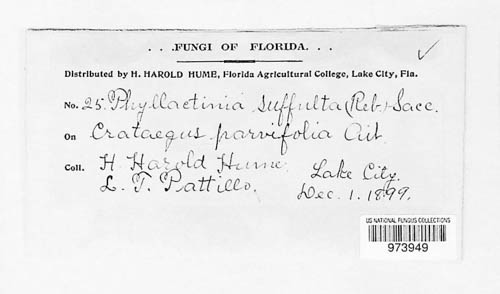 . . .FUNGI OF FLORIDA. . .
Distributed by H. HAROLD HUME, Florida Agricultural College, Lake City, Fla.
No. 25. Phyllactinia suffulta (Reb.) Sacc.
On Crataegus parvifolia Ait.
Coll. H Harold Hume. Lake City.
L. T. Pattillo. Dec. 1. 1899.
US NATIONAL FUNGUS COLLECTIONS
973949